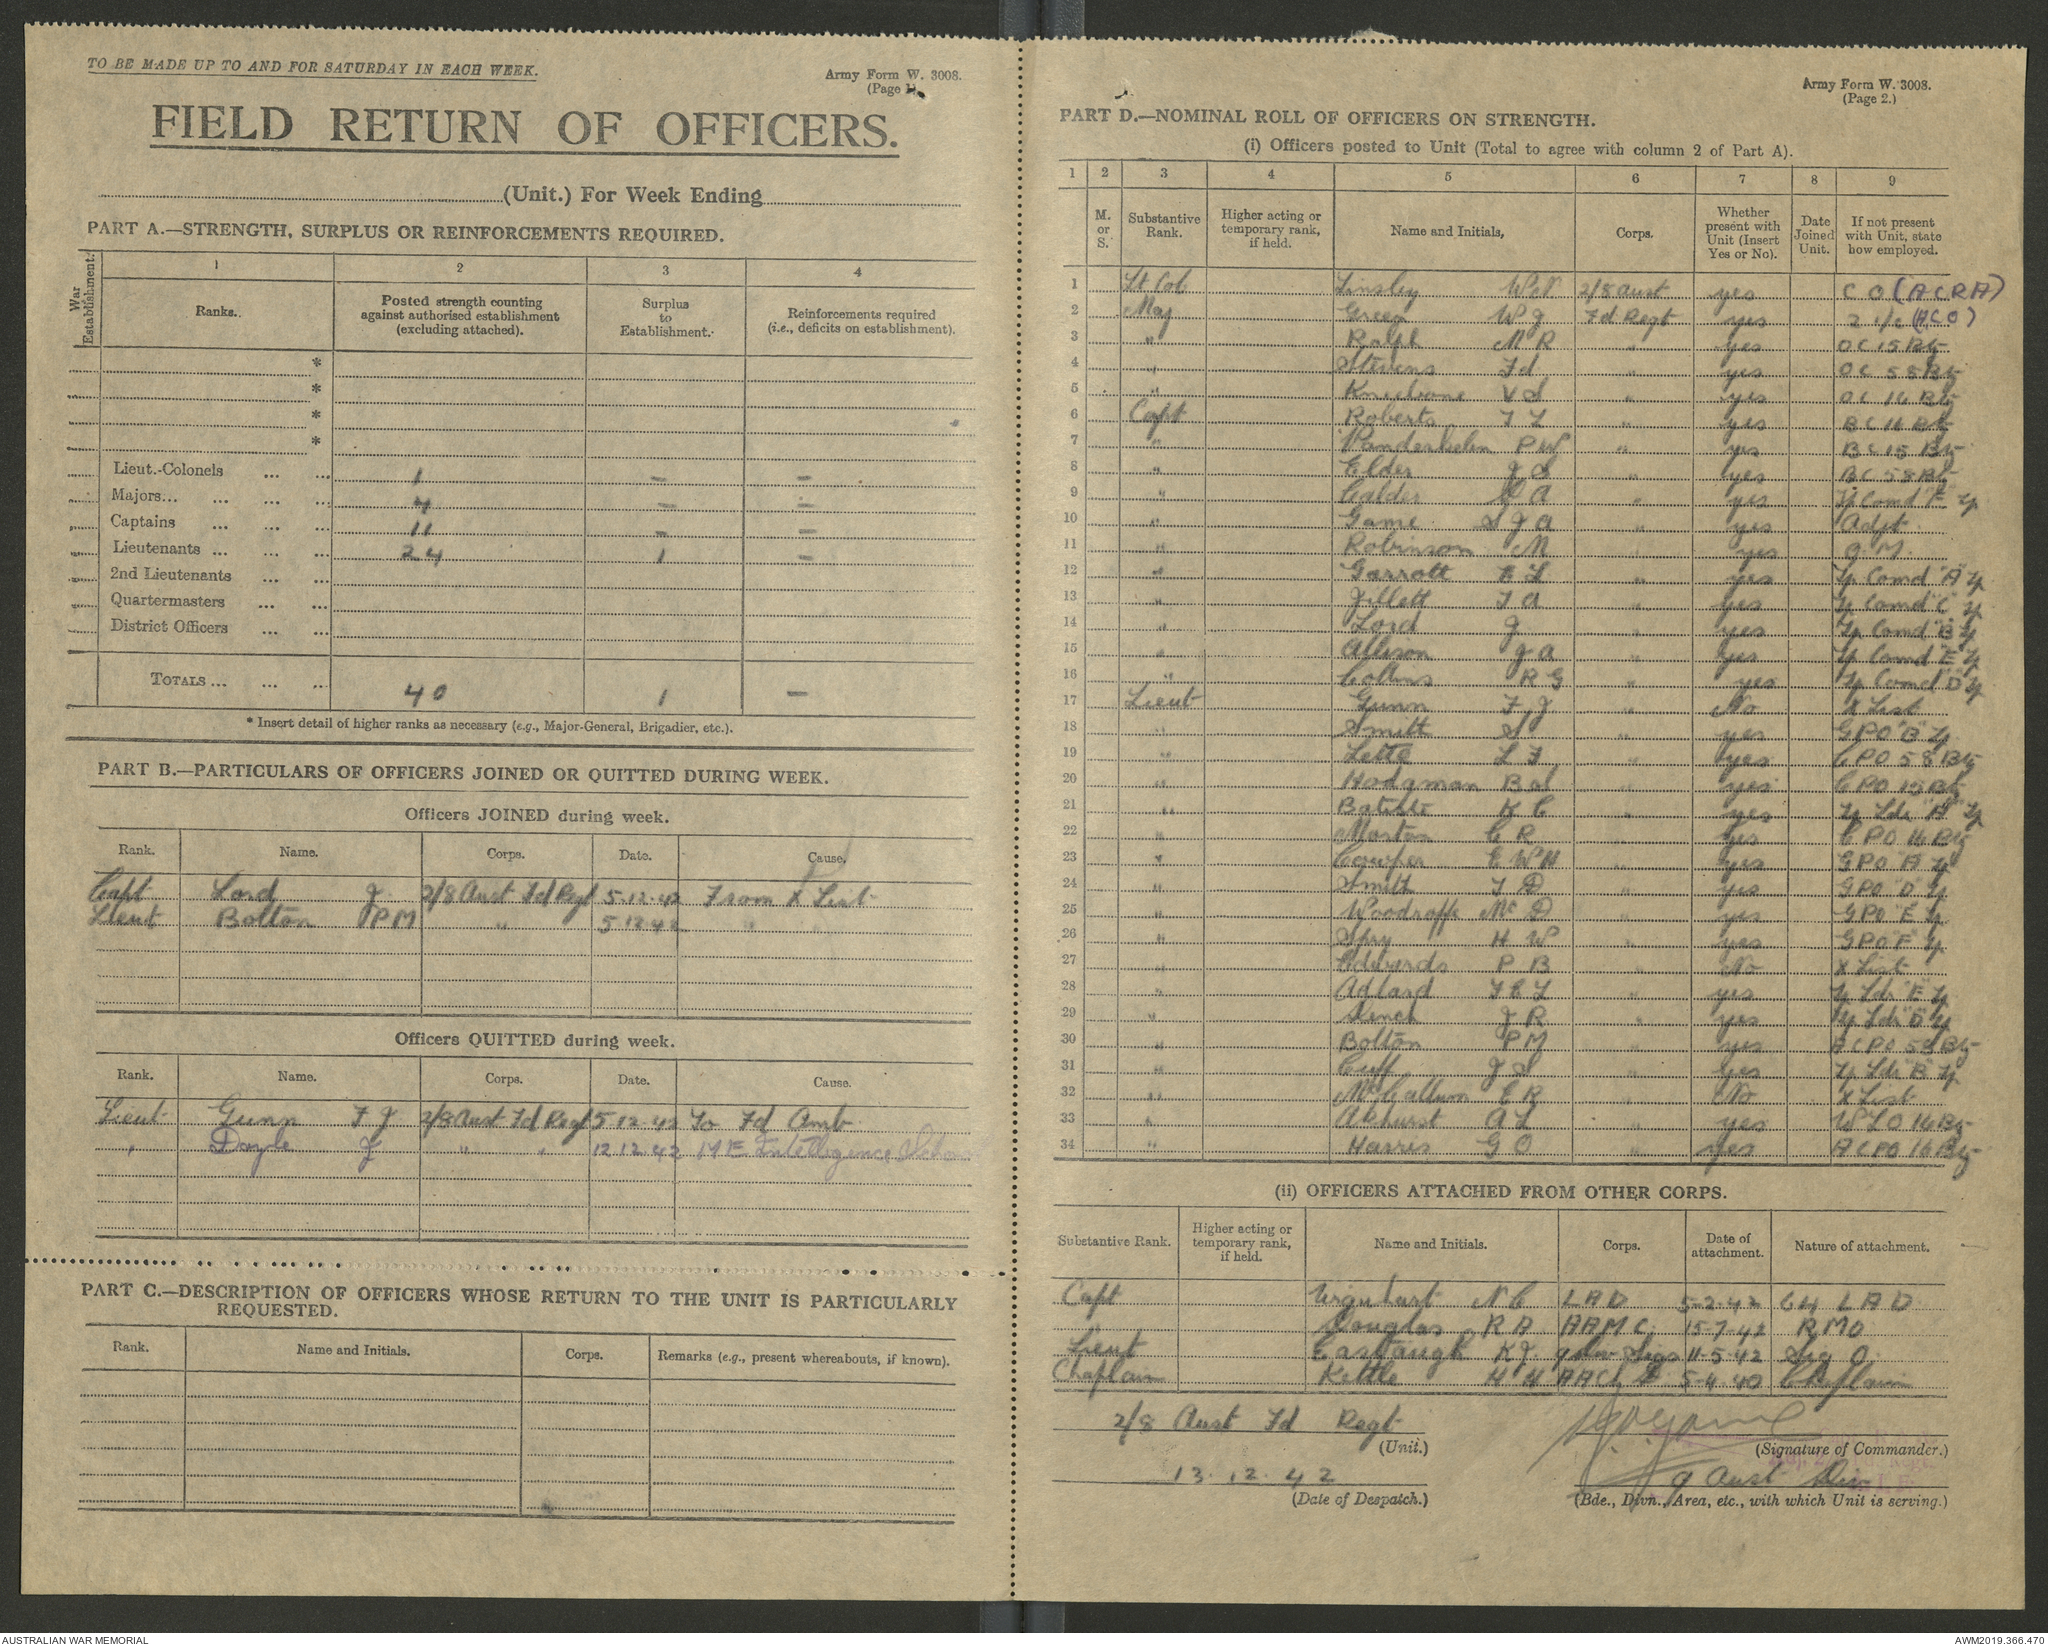 TO BE MADE UP TO AND FOR SATURDAY IN EACH WEEK.
Army Form W. 3008.
(Page 1).
FIELD RETURN OF OFFICERS.
(Unit.) For Week Ending
PART A.—STRENGTH, SURPLUS OR REINFORCEMENTS REQUIRED.
War Establishment.
1 2 3 4
Ranks. Posted strength counting against authorised establishment (excluding attached). Surplus to Establishment. Reinforcements required (i.e., deficits on establishment).
*
*
*
*
Lieut.-Colonels ... ... 1 — —
Majors... ... ... 4 — —
Captains ... ... 11 — —
Lieutenants ... ... ... 24 1 —
2nd Lieutenants ... ...
Quartermasters ... ...
District Officers ... ...
TOTALS ... ... ... 40 1 —
* Insert detail of higher ranks as necessary (e.g., Major-General, Brigadier, etc.).
PART B.—PARTICULARS OF OFFICERS JOINED OR QUITTED DURING WEEK.
Officers JOINED during week.
Rank. Name. Corps. Date. Cause.
Capt Lord J. 2/8 Aust Fd Regt 5.12.42 From X List
Lieut Bolton P M " 5.12.42 "
Officers QUITTED during week.
Rank. Name. Corps. Date. Cause.
Lieut Gunn F J 2/8 Aust Fd Regt 5.12.42 To Fd Amb.
" Doyle J " " 12.12.42 M E Intelligence School
PART C.—DESCRIPTION OF OFFICERS WHOSE RETURN TO THE UNIT IS PARTICULARLY
REQUESTED.
Rank. Name and Initials. Corps. Remarks (e.g., present whereabouts, if known).
Army Form W. 3008.
(Page 2.)
PART D.—NOMINAL ROLL OF OFFICERS ON STRENGTH.
(i) Officers posted to Unit (Total to agree with column 2 of Part A).
1 2 3 4 5 6 7 8 9
M. or S. Substantive Rank. Higher acting or temporary rank, if held. Name and Initials, Corps. Whether present with Unit (Insert Yes or No). Date Joined Unit. If not present with Unit, state how employed.
1 Lt Col Tinsley W N 2/8 Aust yes C O (A C R A)
2 Maj Green W J Fd Regt yes 2 i/c (A C O)
3 " Ralph M R " yes O C 15 Bty
4 " Stevens F d " yes O C 58 Bty
5 " Kneebone V S " yes O C 16 Bty
6 Capt Roberts F L " yes B C 16 Bty
7 " Vanderhelm P W " yes B C 15 Bty
8 " Elder J S " yes B C 58 Bty
9 " Calder A " yes Tp Comd "F" Tp
10 " Game S J A " yes Adjt
11 " Robinson M " yes Q. M.
12 " Garrott E L " yes Tp Comd "A" Tp
13 " Jillett F A " yes Tp Comd "C" Tp
14 " Lord J " yes Tp Comd "B" Tp
15 " Allison J A " yes Tp Comd "E" Tp
16 " Collins R G " yes Tp Comd "D" Tp
17 Lieut Gunn F J " No X List
18 " Smith S " yes G P O "B" Tp
19 " Lette L F " yes C P O 58 Bty
20 " Hodgman B " yes C P O 15 Bty
21 " K C " yes Tp Ldr "A" Tp
22 " Morton C R " yes C P O 16 Bty
23 " Cowper E W H " yes G P O "A" Tp
24 " Smith F D " yes G P O "D" Tp
25 " Woodroffe Mc D " yes G P O "E" Tp
26 " Spry H W " yes G P O "F" Tp
27 " Edwards P B " No X List
28 " Adlard F E L " yes Tp Ldr "E" Tp
29 " J R " yes Tp Ldr "D" Tp
30 " Bolton P M " yes A C P O 58 Bty
31 " Cuff J S " yes Tp Ldr "B" Tp
32 " McCallum E R " No X List
33 " Akhurst A L " yes W L O 16 Bty
34 " Harris G O " yes A C P O 16 Bty
(ii) OFFICERS ATTACHED FROM OTHER CORPS.
Substantive Rank. Higher acting or temporary rank, if held. Name and Initials. Corps. Date of attachment. Nature of attachment.
Capt Urquhart N C L A D 5-2-42 L A D
Douglas R A A A M C. 15-7-42 R M O
Lieut Eastaugh K J. 9 Div Sigs 11-5-42 Sig O.
Chaplain Kettle H H A A Ch D. 5-4-40 Chaplain
2/8 Aust Fd Regt
(Unit.)
(Signature of Commander.)
13.12.42
(Date of Despatch.)
9 Aust Div
(Bde., Divn., Area, etc., with which Unit is serving.)
AUSTRALIAN WAR MEMORIAL
AWM2019.366.470